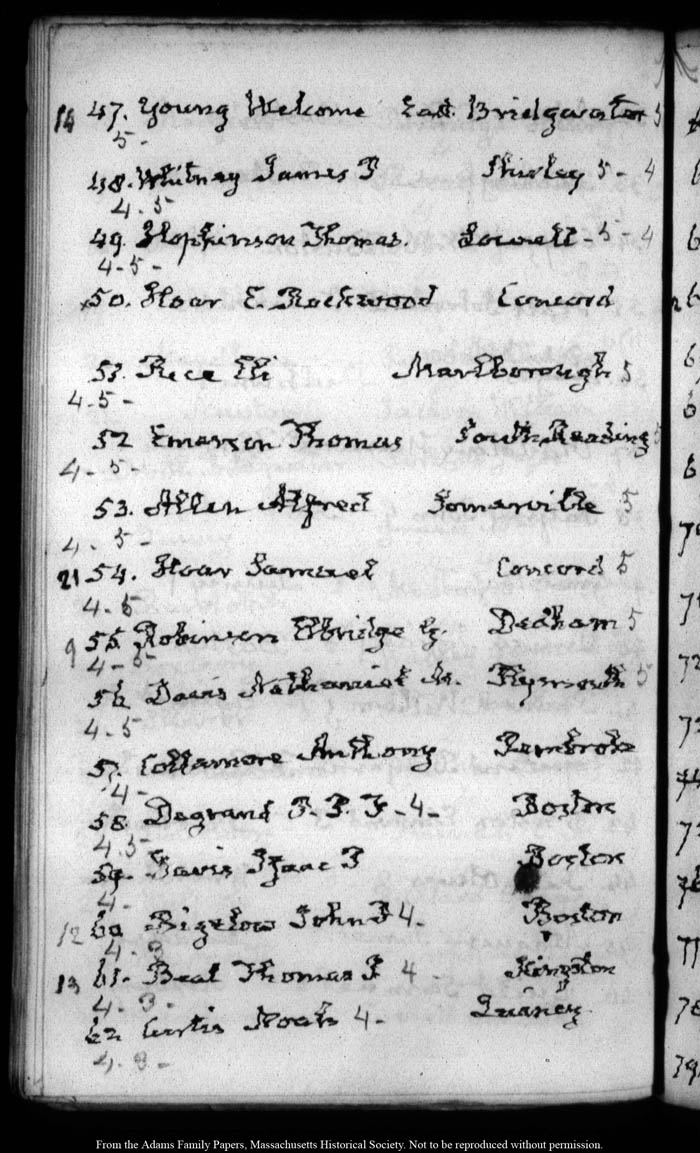 14 47. Young Welcome East Bridgwater 5
5-
48. Whitney James P Shirley 5-4
4-5
49. Hopkinson Thomas. Lowell-5-4
4-5-
50. Hoar E. Rockwood Concord
51. Rice Eli Marlborough 5
4-5-
52 Emerson Thomas South Reading 5
4-5-
53. Allen Alfred Somerville 5
4-5-
21 54. Hoar Samuel Concord 5
4-5
9 55. Robinson Elbridge G. Dedham 5
4-5
56 Davis Nathaniel M. Plymouth 5
4-5
57. Collamore Anthony Pembroke
4-
58 Degrand P. P. F-4- Boston
4-5
59. Davis Isaac P Boston
4-
12 60 Bigelow John P 4- Boston
4-8
13 61. Beal Thomas P 4 Kingston
4-8-
62 Curtis Noah 4- Quincy
4-8-
From the Adams Family Papers, Massachusetts Historical Society. Not to be reproduced without permission.